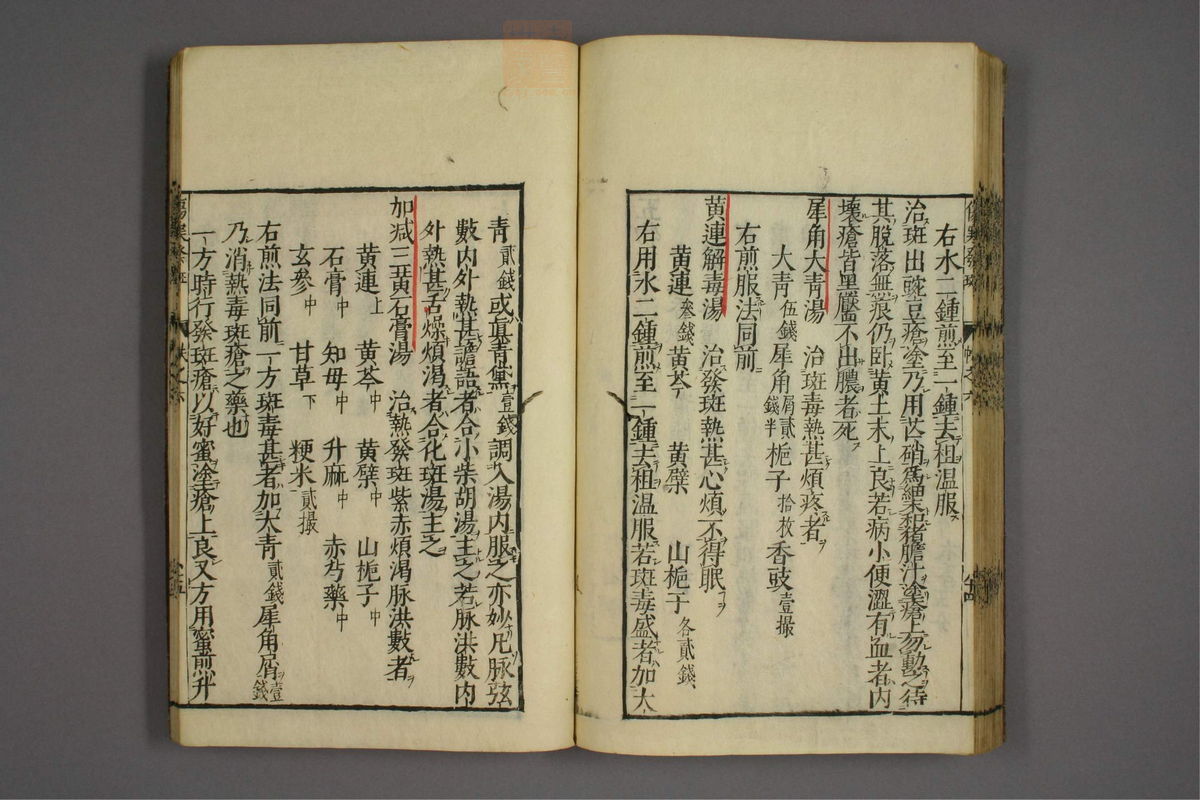 右水二鍾煎至一鍾去柤温服
治斑出豌豆瘡塗乃用芒硝爲細末和猪膽汁塗瘡上勿動之待
其脱落無痕仍卧黄土末上良若病小便澀有血者内
壞瘡皆黒靨不出膿者死
犀角大青湯 治斑毒熱甚煩疼者
大青伍錢犀角屑貳錢半梔子拾枚香豉壹撮
右煎服法同前
黄連解毒湯 治發斑熱甚心煩不得眠
黄連叁錢黄芩 黄檗 山梔子各貳錢
右用水二鍾煎至一鍾去柤温服若斑毒盛者加大
青貳錢或眞青黛壹錢調入湯内服之亦妙凡脉弦
數内外熱甚譫語者合小柴胡湯主之若脉洪數内
外熱甚舌燥煩渇者合化斑湯主之
加减三黄石膏湯 治熱發斑紫赤煩渇脉洪數者
黄連上 黄芩中 黄檗中 山梔子中
石膏中 知母中 升麻中 赤芍藥中
玄參中 甘草下 粳米貳撮
右煎法同前一方斑毒甚者加大青貳錢犀角屑壹錢
乃消熱毒斑瘡之藥也
一方時行發斑瘡以好蜜塗瘡上良又方用蜜煎升